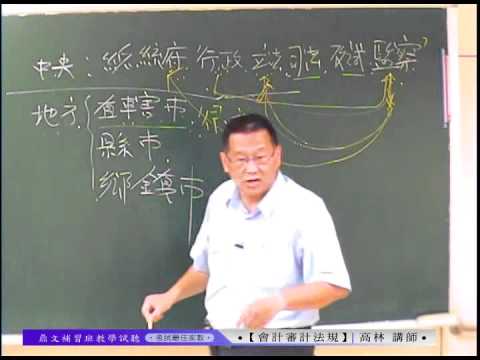 中央：總統府 行政 立法 司法 考試 監察
地方 直轄市 行
縣市
鄉鎮市
鼎文補習班教學試聽 ・考試最佳家教・ •【會計審計法規】| 高林 講師•